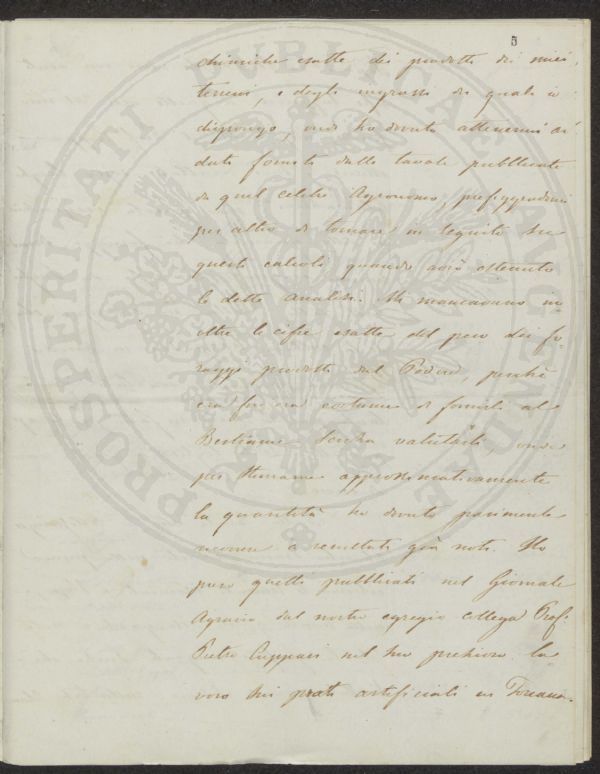 5
chimiche esatte dei prodotti dei miei
terreni, e degli ingrassi dei quali io
dispongo, onde ho dovuto attenermi ai
dati forniti dalle tavole pubblicate
da quel celebre Agronomo, prefiggendomi
per altro di tornare in seguito su
questi calcoli quando avrò ottenuto
le dette analisi. Mi mancavano in-
oltre le cifre esatte del peso dei fo-
raggi prodotti dal Podere, perchè
era costume di fornirli al
Bestiame senza valutarli, onde
per stimarne approssimativamente
la quantità ho dovuto parimente
ricorrere a resultati già noti. Ho
preso quelli pubblicati nel Giornale
Agrario dal nostro egregio collega Prof.
Pietro Cuppari nel suo prezioso la
voro sui prati artificiali in Toscana.
PROSPERITATI PUBLICAE AUGENDAE